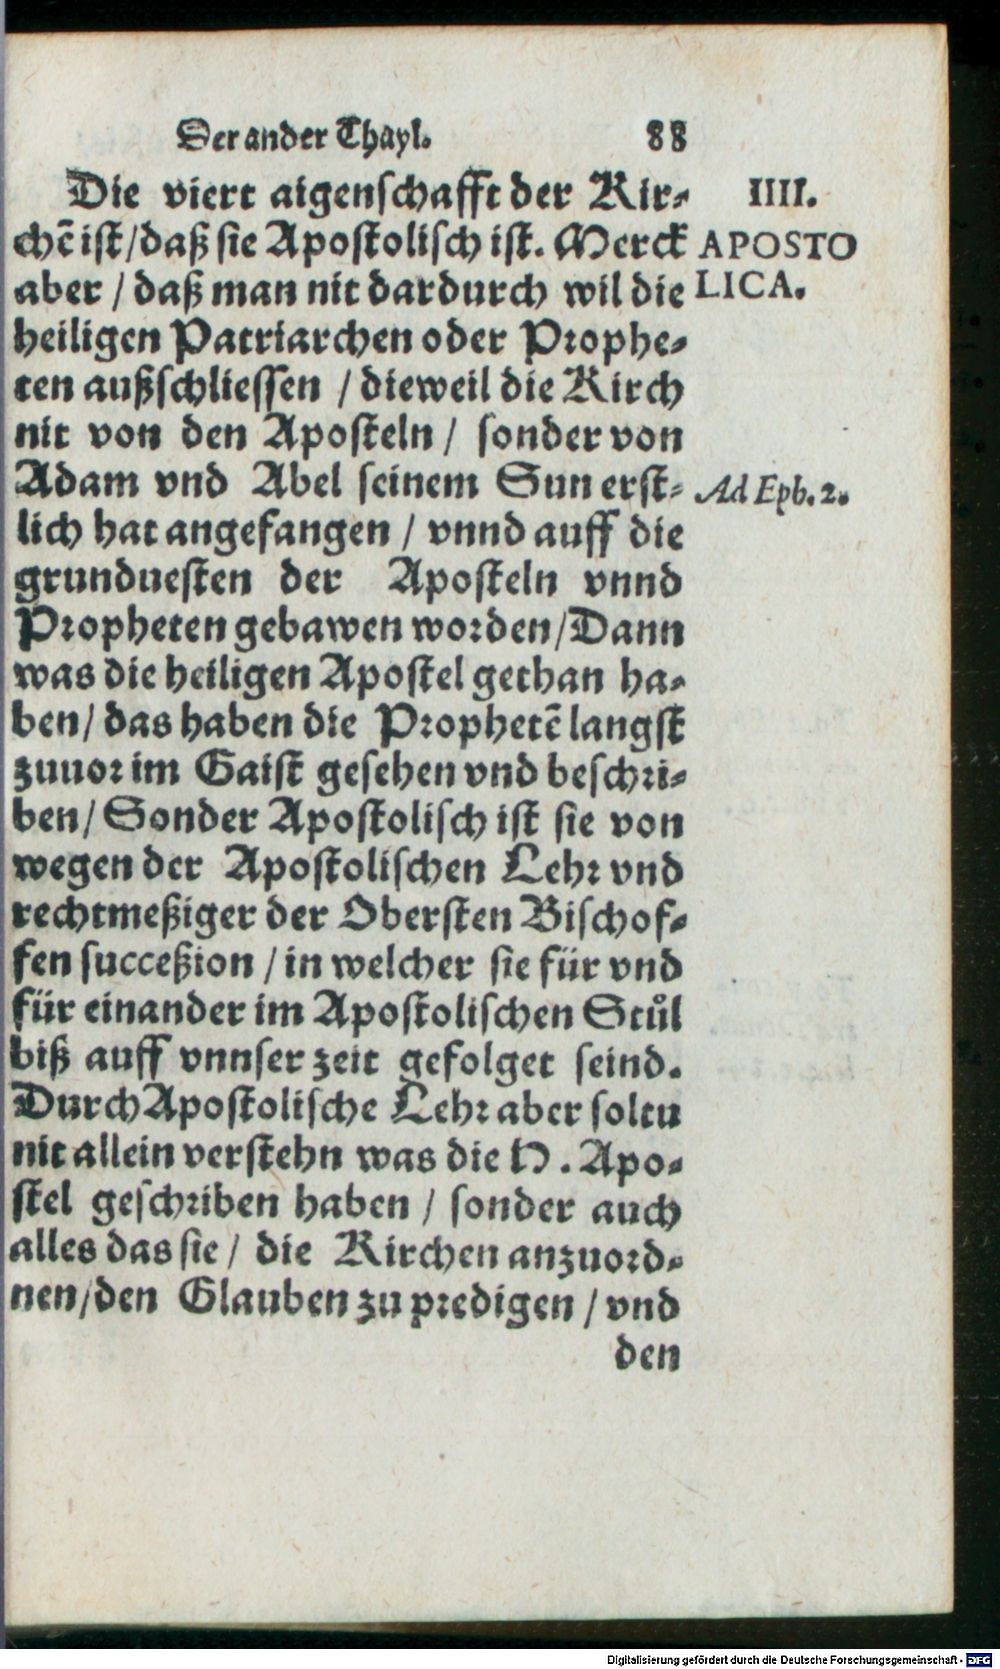 Der ander Thayl. 88
Die viert aigenschafft der Kir-
chẽ ist/daß sie Apostolisch ist. Merck
aber / daß man nit dardurch wil die
heiligen Patriarchen oder Prophe-
ten außschliessen / dieweil die Kirch
nit von den Aposteln / sonder von
Adam vnd Abel seinem Sun erst-
lich hat angefangen / vnnd auff die
grunduesten der Aposteln vnnd
Propheten gebawen worden/Dann
was die heiligen Apostel gethan ha-
ben/ das haben die Prophetẽ langst
zuuor im Gaist gesehen vnd beschri-
ben/ Sonder Apostolisch ist sie von
wegen der Apostolischen Lehr vnd
rechtmeßiger der Obersten Bischof-
fen succeßion / in welcher sie für vnd
für einander im Apostolischen Stůl
biß auff vnnser zeit gefolget seind.
Durch Apostolische Lehr aber soltu
nit allein verstehn was die H. Apo-
stel geschriben haben / sonder auch
alles das sie / die Kirchen anzuord-
nen/den Glauben zu predigen / vnd
den
IIII.
APOSTO
LICA.
Ad Eph. 2.
Digitalisierung gefördert durch die Deutsche Forschungsgemeinschaft - DFG